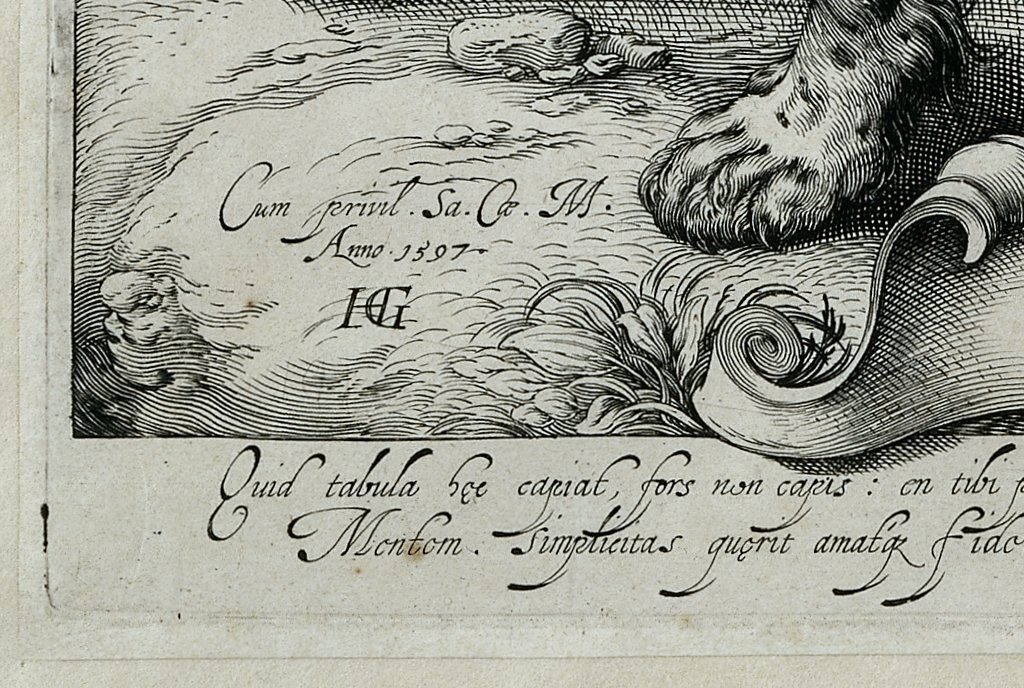 Cum privil. Sa. Cæ. M.
Anno. 1597.
HG
Quid tabula hęc capiat, fors non capis : en tibi
Mentem. Simplicitas quęrit amatqꝫ